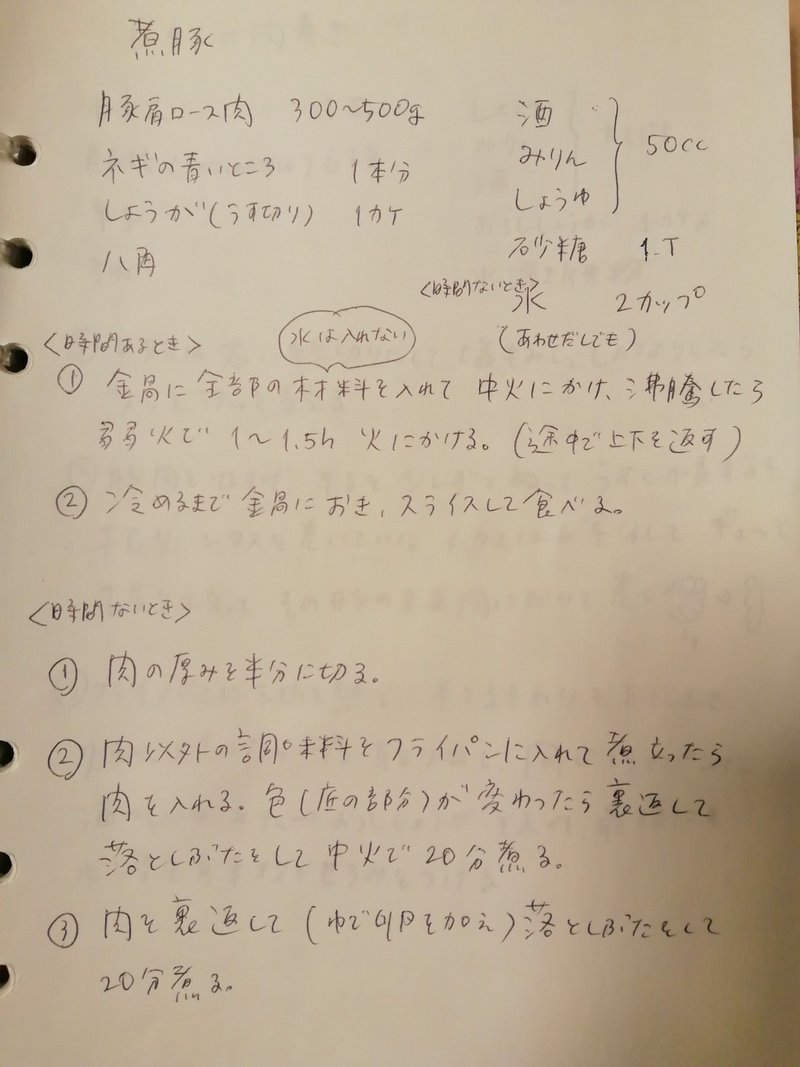 煮豚
豚肩ロース肉 300〜500g
ネギの青いところ 1本分
しょうが(うす切り) 1カケ
八角
酒
みりん
しょうゆ
50cc
砂糖 1.T
<時間ないとき>
水 2カップ
(あわせだしでも)
<時間あるとき>
水は入れない
① 金局に全部の材料を入れて 中火にかけ、沸騰したら
弱弱火で 1〜1.5h 火にかける。(途中で上下を返す)
② 冷めるまで 金局に おき、スライスして食べる。
<時間ないとき>
① 肉の厚みを半分に切る。
② 肉以外の調味料をフライパンに入れて 煮立ったら
肉を入れる。色(底の部分)が 変わったら 裏返して
落としぶたをして 中火で 20分煮る。
③ 肉を裏返して (ゆで卵を加え) 落としぶたをして
20分煮る。